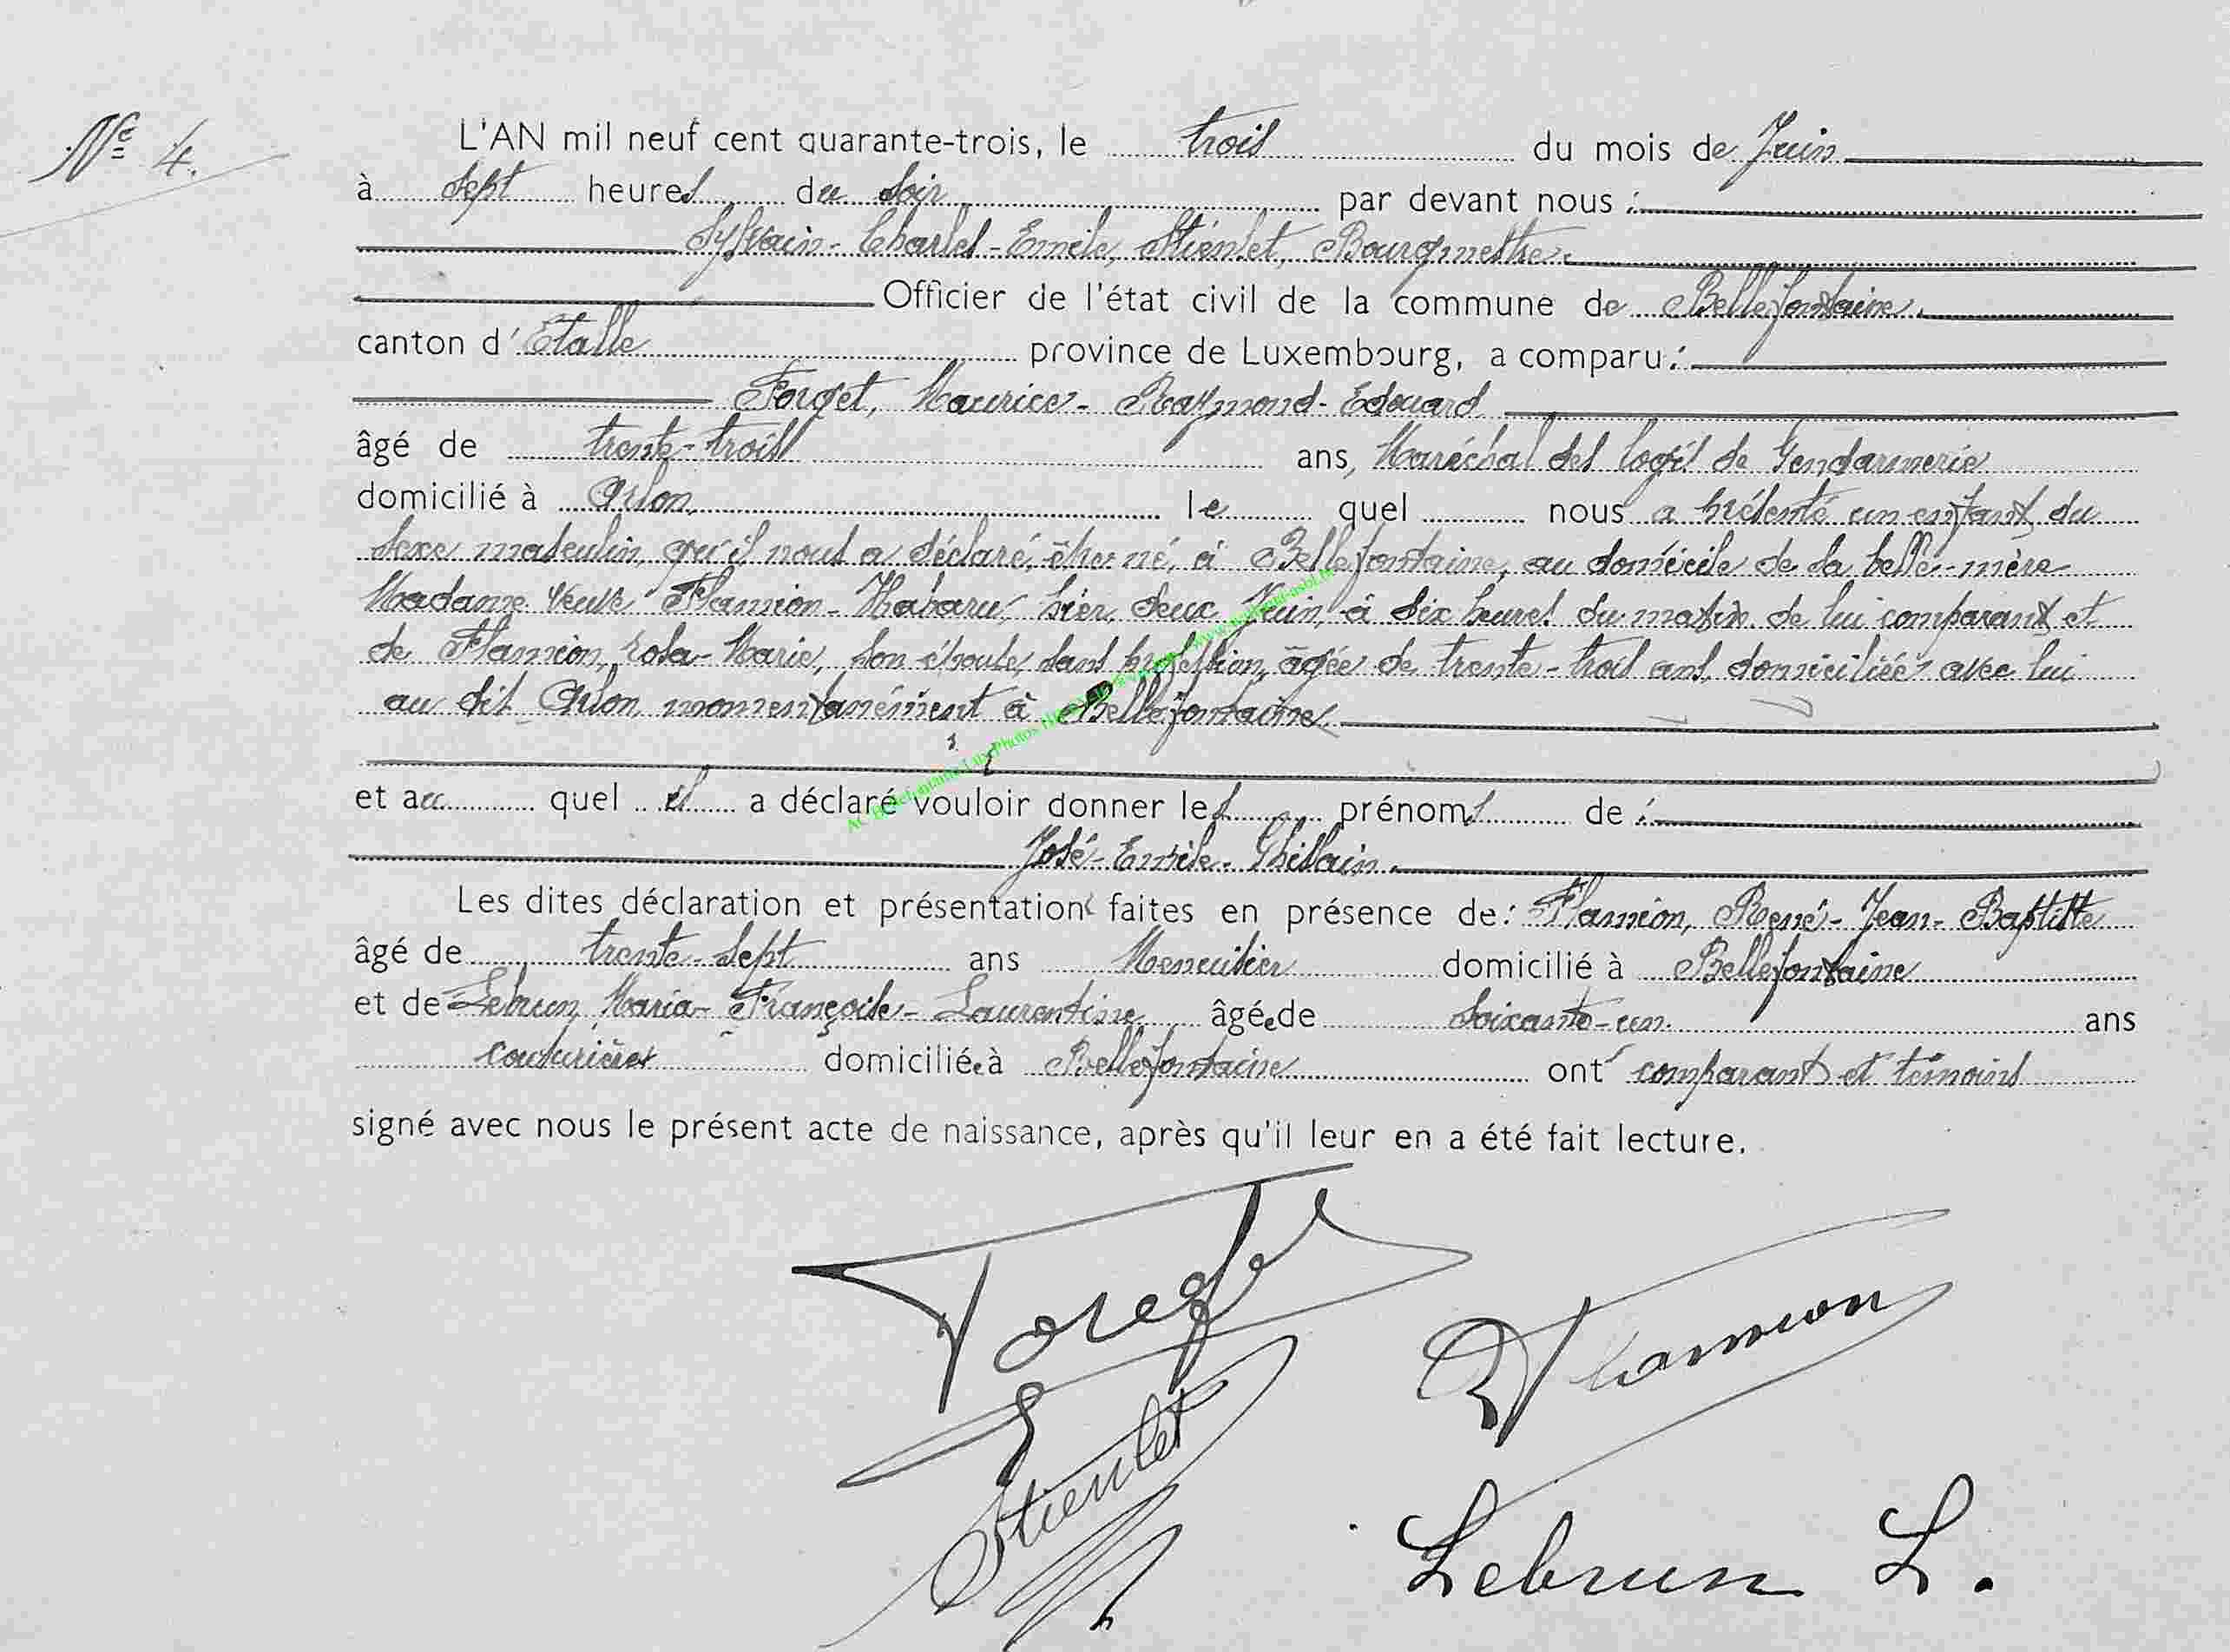 Nº 4.
L'AN mil neuf cent quarante-trois, le trois du mois de Juin
à sept heures du soir par devant nous :
Sylvain-Charles-Emile, Stiénlet, Bourgmestre.
Officier de l'état civil de la commune de Bellefontaine.
canton d'Etalle province de Luxembourg, a comparu :
Forget, Maurice-Raymond-Edouard
âgé de trente-trois ans, Maréchal des logis de Gendarmerie
domicilié à Arlon, le quel nous a présenté un enfant du
sexe masculin, qu'il nous a déclaré être né, à Bellefontaine, au domicile de sa belle-mère
Madame Veuve Flamion-Habaru, hier, deux Juin, à six heures du matin. de lui comparant et
de Flamion, Rosa-Marie, son épouse, sans profession, âgée de trente-trois ans, domiciliée avec lui
au dit Arlon, momentanément à Bellefontaine
et au quel il a déclaré vouloir donner les prénoms de :
José-Emile-Ghislain.
Les dites déclaration et présentation faites en présence de : Flamion, René-Jean-Baptiste
âgé de trente-sept ans Menuisier domicilié à Bellefontaine
et de Lebrun, Maria-Françoise-Laurentine âgée de soixante-un ans
couturière domiciliée à Bellefontaine ont comparant et témoins
signé avec nous le présent acte de naissance, après qu'il leur en a été fait lecture.
Forget
Flamion
Stienlet
Lebrun L.